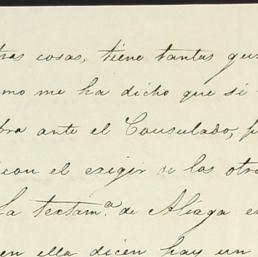 tras cosas, tiene tantas que
omo me ha dicho que si
bra ante el Consulado, p
con el exigir de las otr
la textam.ª de Aliaga e
en ella dicen hay un